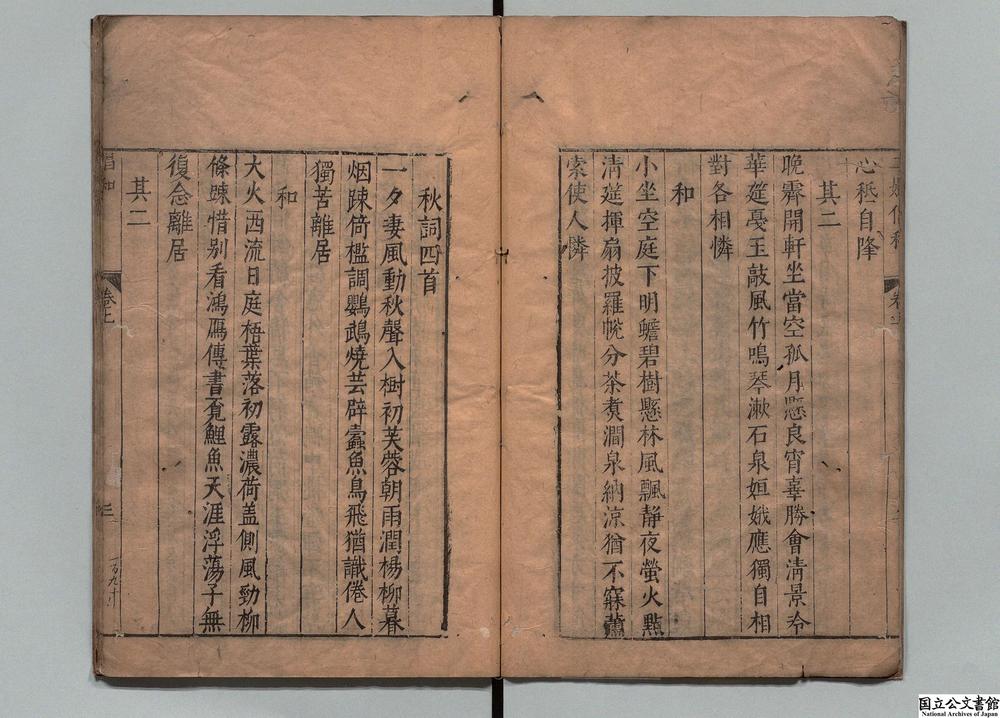 心秪自隆
其二
晚霽開軒坐當空孤月懸良宵辜勝會淸景冷
華筵戞玉敲風竹鳴琴漱石泉姮娥應獨自相
對各相憐
和
小坐空庭下明蟾碧樹懸林風飄靜夜螢火㸃
淸筵揮扇披羅幌分茶煑澗泉納涼猶不寐蕭
索使人憐
秋詞四首
一夕凄風動秋聲入樹初芙蓉朝雨潤楊柳暮
烟踈倚檻調鸚鵡燒芸辟蠹魚鳥飛猶識倦人
獨苦離居
和
大火西流日庭梧葉落初露濃荷盖側風勁柳
條踈惜别看鴻鴈傳書覔鯉魚天涯浮蕩子無
復念離居
其二
唱和
卷上
三
国立公文書館
National Archives of Japan